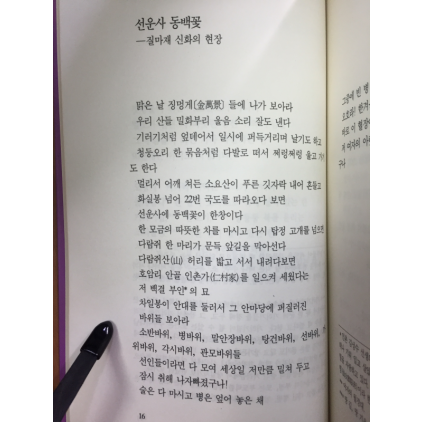 선운사 동백꽃
—질마재 신화의 현장
맑은 날 징멍게(金萬景) 들에 나가 보아라
우리 산들 밀화부리 울음 소리 잘도 낸다
기러기처럼 엎데어서 일시에 퍼득거리며 날기도 하고
청둥오리 한 묶음처럼 다발로 떠서 쩌렁쩌렁 울고
도 한다
멀리서 어깨 쳐든 소요산이 푸른 깃자락 내어 흔들고
화실봉 넘어 22번 국도를 따라오다 보면
선운사에 동백꽃이 한창이다
한 모금의 따뜻한 차를 마시고 다시 탑정 고개를 넘으면
다람쥐 한 마리가 문득 앞길을 막아선다
다람쥐산(山) 허리를 밟고 서서 내려다보면
호암리 안골 인촌가(仁村家)를 일으켜 세웠다는
저 백결 부인*의 묘
차일봉이 안대를 둘러서 그 안마당에 퍼질러진
바위들 보아라
소반바위, 병바위, 말안장바위, 탕건바위, 선바위,
위바위, 각시바위, 관모바위들
선인들이라면 다 모여 세상일 저만큼 밀쳐 두고
잠시 취해 나자빠졌구나!
술은 다 마시고 병은 엎어 놓은 채
16
구나